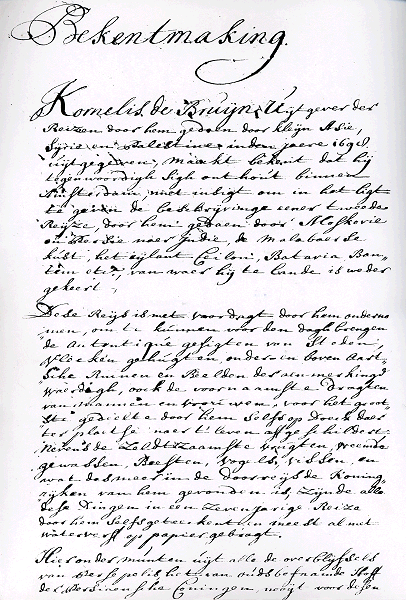 Bekentmaking.
Kornelis de Bruijn, Uijtgever der
Reizen door hem gedaen door kleijn Asie,
Syrie en Palestine in den jaere 1698
uijtgegeven, maakt bekent dat hij
tegenwoordigh sigh onthout binnen
Amsterdam met insigt om in het ligt
te geven de beschrijvinge eener tweede
Reijze, door hem gedaen door Moskovie
en Persie naer Indie, de Malabaerse
kust, het eijlant Ceilon, Batavia Ban-
tem etc, van waer hij te lande is weder
gekeert.
Dese Reijs is met voordragt door hem onderno-
men, om te kunnen voor den dagh brengen
de gesigten van Steden,
Vlecken gehugten, ondersn boven aart-
sche Ruinen en Beelden des aenmerkings
waerdigh, oock de voornaamste dragten
van mannen en vrouwen, voor het groot-
ste gedielte door hem selfs op Doeck daer
ter plaetse naer't leven afgeschildert.
Nevens de Zeldtzaamste vrugten, vreemde
gewassen, Beesten, vogels, vissen, en
wat des meer in de doorreijsde Koning-
rijken van hem gevonden is, Zijnde alle
dese Dingen in een Zevenjarige Reize
door hem selfs geteekent in meest al met
waterverff op papier gebragt.
Hier onder munten uijt alle de overblijffsels
van Persepolis, het van ouds befaamde Hoff
der Persiaensche Coningen, nooijt voor desen